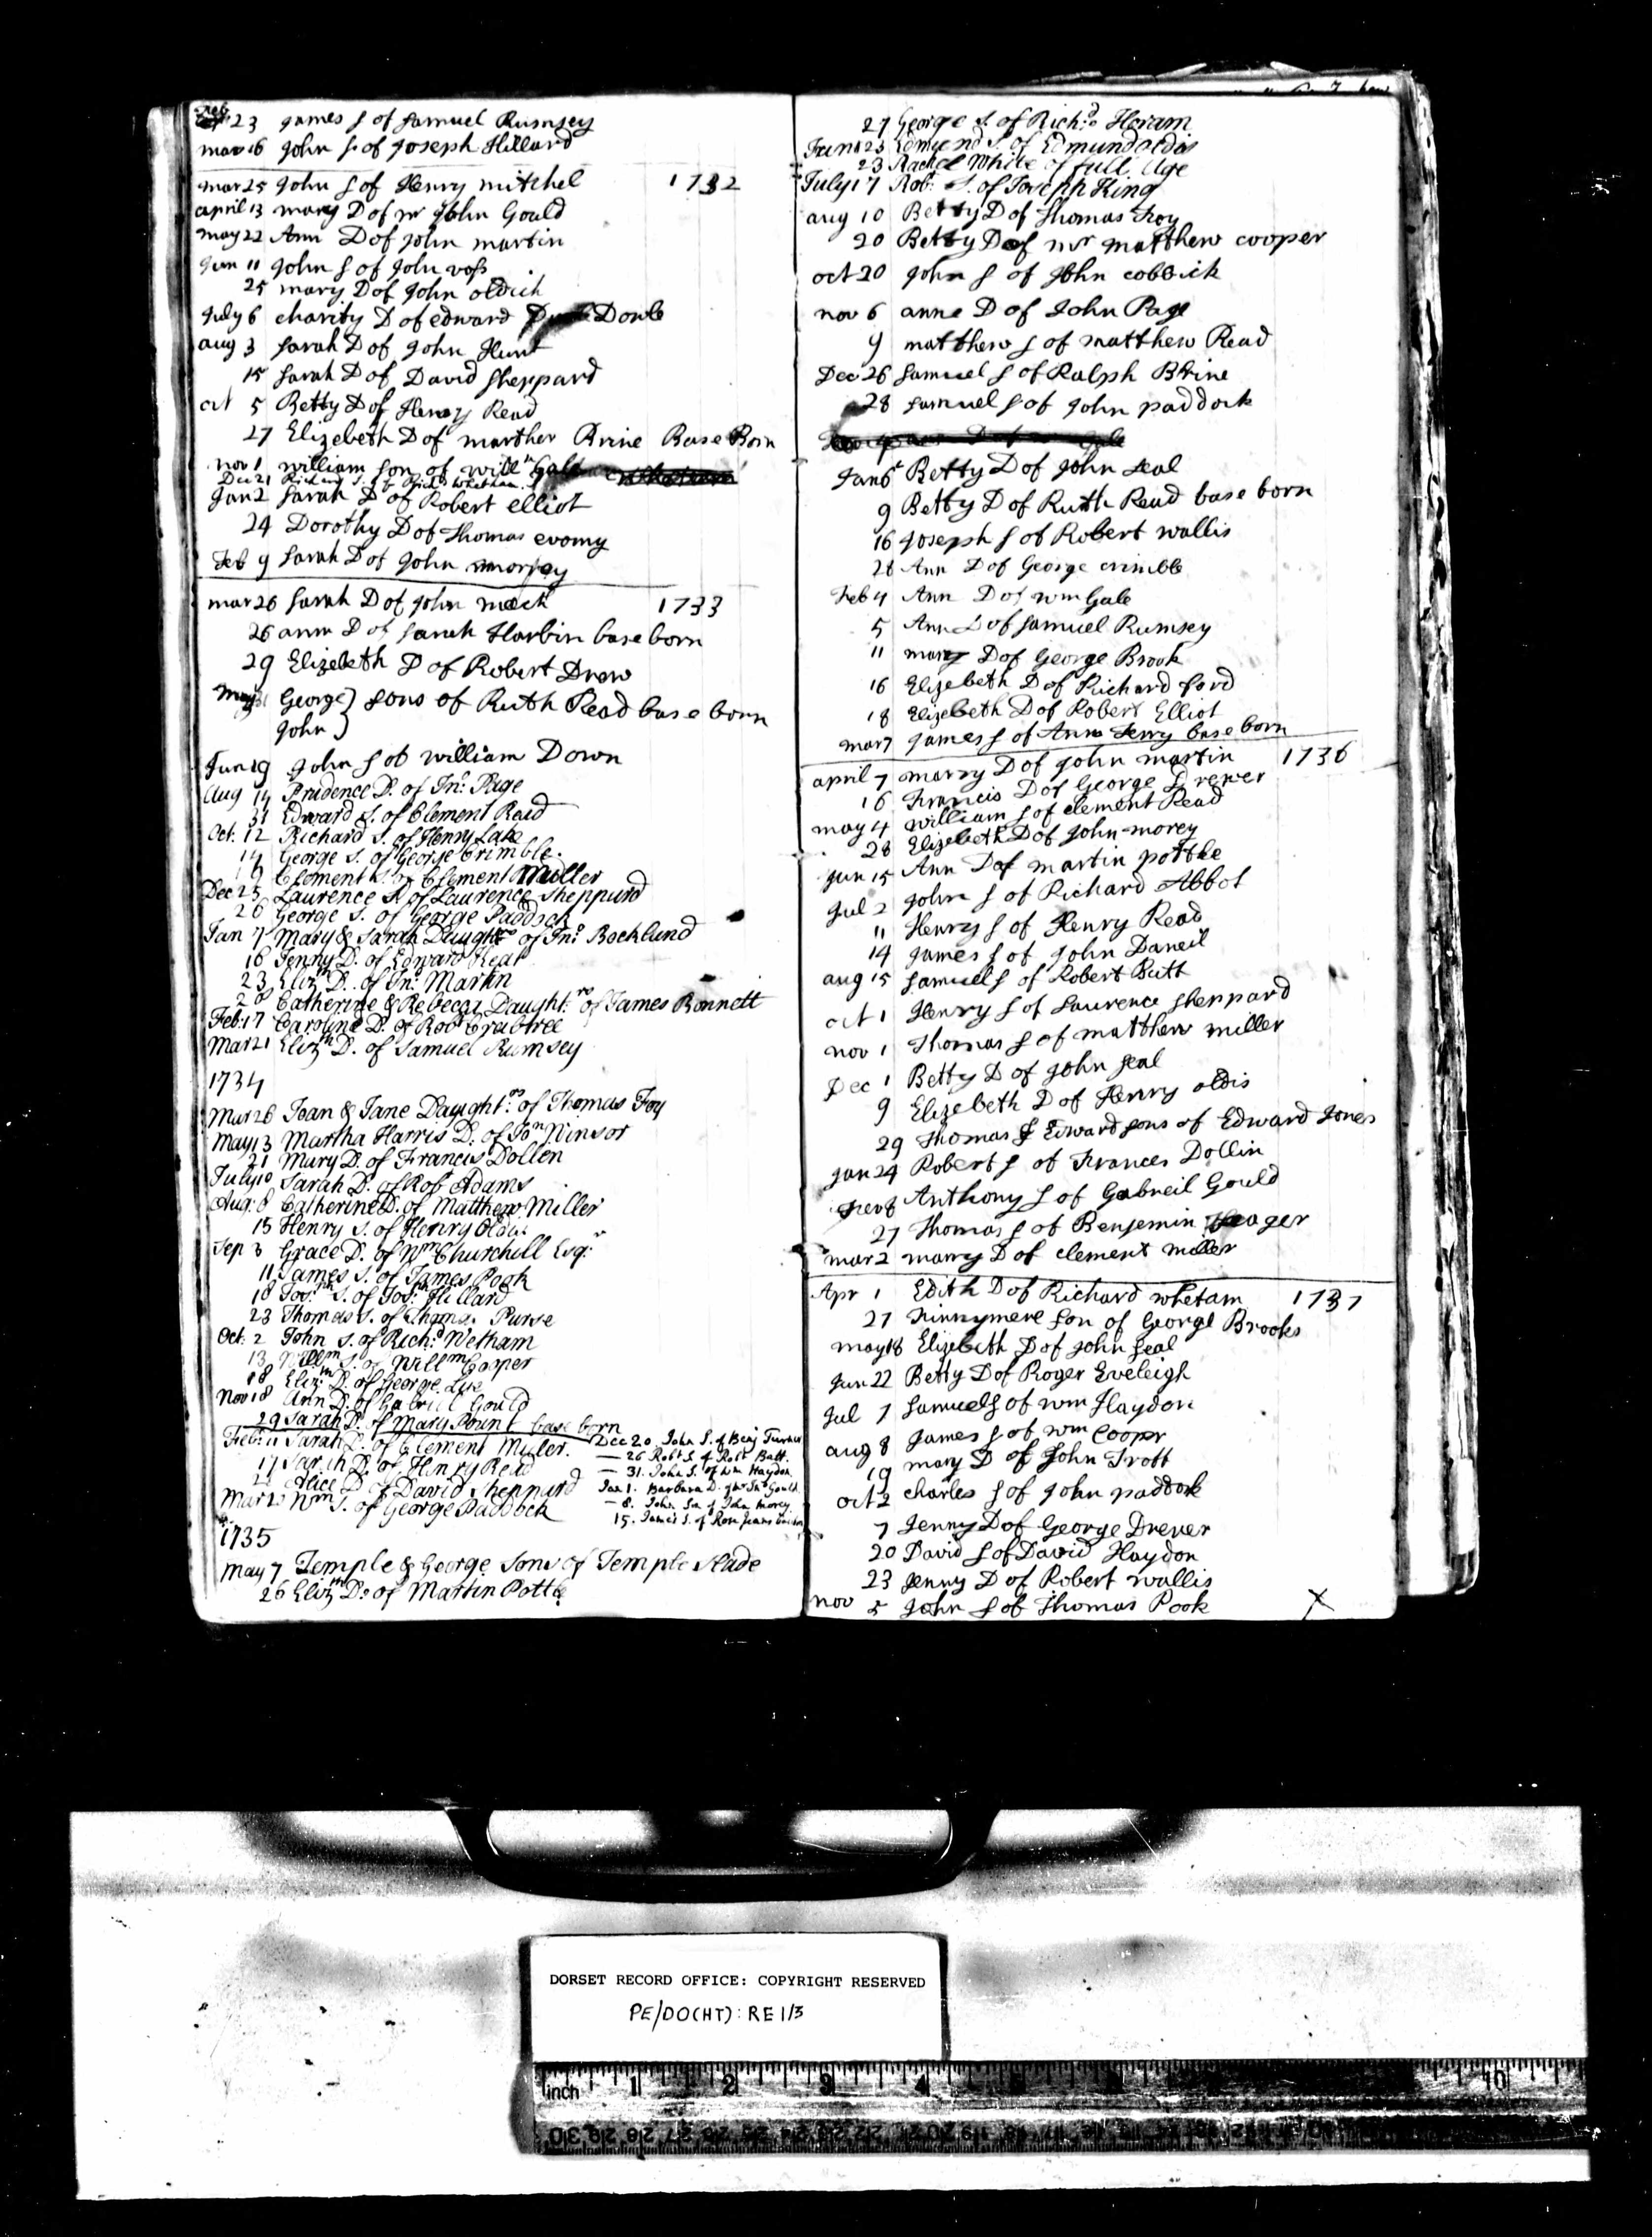 Feb 23 James S of Samuel Rumsey
mar 16 John S of Joseph Hillard
mar 25 John S of Henry mitchel 1732
april 13 mary D of mr John Gould
may 22 Ann D of John martin
Jun 11 John S of John voss
25 mary D of John oldich
July 6 charity D of edward Dowle
aug 3 Sarah D of John Hunt
15 Sarah D of David Sheppard
oct 5 Betty D of Henry Read
27 Elizebeth D of marther Brine Base Born
nov 1 william son of willm Gale
Dec 21 Richard S. of Richd Whetham
Jan 2 Sarah D of Robert elliot
24 Dorothy D of Thomas evomy
Feb 9 Sarah D of John
mar 26 Sarah D of John mack 1733
26 ann D of Sarah Harbin base born
29 Elizebeth D of Robert Drew
may George } sons of Ruth Read base born
John }
Jun 19 John S of william Down
Aug 14 Prudence D. of Jno. Page
31 Edward S. of Clement Read
Oct. 12 Richard S. of Henry Lake
14 George S. of George Crimble.
19 Clement S. of Clement Miller
Dec 25 Laurence S. of Laurence Sheppard
26 George S. of George Paddock
Jan 7 Mary & Sarah Daughtrs of Jno. Bockland
16 Jenny D. of Edward
23 Elizth D. of Jno. Martin
28 Catherine & Rebecca Daught.rs of James Bonnett
Feb: 17 Caroline D. of Robt Crabtree
Mar 21 Elizth D. of Samuel Rumsey
1734
Mar 28 Joan & Jane Daught.rs of Thomas Foy
May 13 Martha Harris D. of Jon Winsor
21 Mary D. of Francis Dollen
July 10 Sarah D. of Robt Adams
Aug: 8 Catherine D. of Matthew Miller
15 Henry S. of Henry Oldis
Sep 3 Grace D. of Wm Churchill Esqr.
11 James S. of James Pook
18 Josph S. of Josph Hillard
23 Thomas S. of Thomas Purse
Oct. 2 John S. of Richd. Wetham
13 Willm S. of Willm Cooper
18 Elizth D. of George
Nov 18 Ann D. of Gabriell Gould
29 Sarah D. of Mary Pount base born
Feb: 11 Sarah D. of Clement Miller. Dec 20. John S. of Benj Turner
17 Sarah D. of Henry Read — 26 Robt S. of Robt Batt.
21 Alice D. of David Sheppard — 31. John S. of Wm Haydon
Mar 10 Wm S. of George Paddock Jan 1. Barbara D. of Mr Jno Gould.
— 8. John Son of John Morey
15. James S. of Rose Jeans
1735
May 7 Temple & George Sons of Temple Slade
26 Elizth D: of Martin Pottle
27 George S. of Richd. Horam
June 23 Edmund S. of Edmund oldis
23 Rachel White of full Age
July 17 Robt S. of Joseph King
aug 10 Betty D of Thomas Foy
20 Betty D of mr matthew cooper
oct 20 John S of John cobbick
nov 6 anne D of John Page
9 matthew S of matthew Read
Dec 26 Samuel S of Ralph Brine
28 Samuel S of John paddock
Jan 6 Betty D of John Seal
9 Betty D of Ruth Read base born
16 Joseph S of Robert wallis
28 Ann D of George crimble
Feb 4 Ann D of wm Gale
5 Ann D of Samuel Rumsey
11 mary D of George Brook
16 Elizebeth D of Richard ford
18 Elizebeth D of Robert Elliot
mar 7 James S of Ann Terry base born
april 7 marry D of John martin 1736
16 Francis D of George Drewer
may 4 william S of clement Read
28 Elizebeth D of John morey
Jun 15 Ann D of martin pottle
Jul 2 John S of Richard Abbot
11 Henry S of Henry Read
14 James S of John Daneil
aug 15 Samuel S of Robert Butt
oct 1 Henry S of Laurence Sheppard
nov 1 Thomas S of matthew miller
Dec 1 Betty D of John Seal
9 Elizebeth D of Henry oldis
29 Thomas & Edward sons of Edward Jones
Jan 24 Robert S of Frances Dollin
Feb 8 Anthony S of Gabrieil Gould
27 Thomas S of Benjemin
mar 2 marry D of clement miller
Apr 1 Edith D of Richard whetam 1737
27 Ninnymere son of George Brooks
may 18 Elizebeth D of John Seal
Jun 22 Betty D of Roger Eveleigh
Jul 7 Samuel S of wm Haydon
aug 8 James S of wm Cooper
19 mary D of John Trott
oct 2 charles S of John paddock
7 Jenny D of George Drewer
20 David S of David Haydon
23 Jenny D of Robert wallis
nov 5 John S of Thomas Pook X
DORSET RECORD OFFICE: COPYRIGHT RESERVED
PE/DO(HT): RE 1/3
inch 1 2 3 4 10